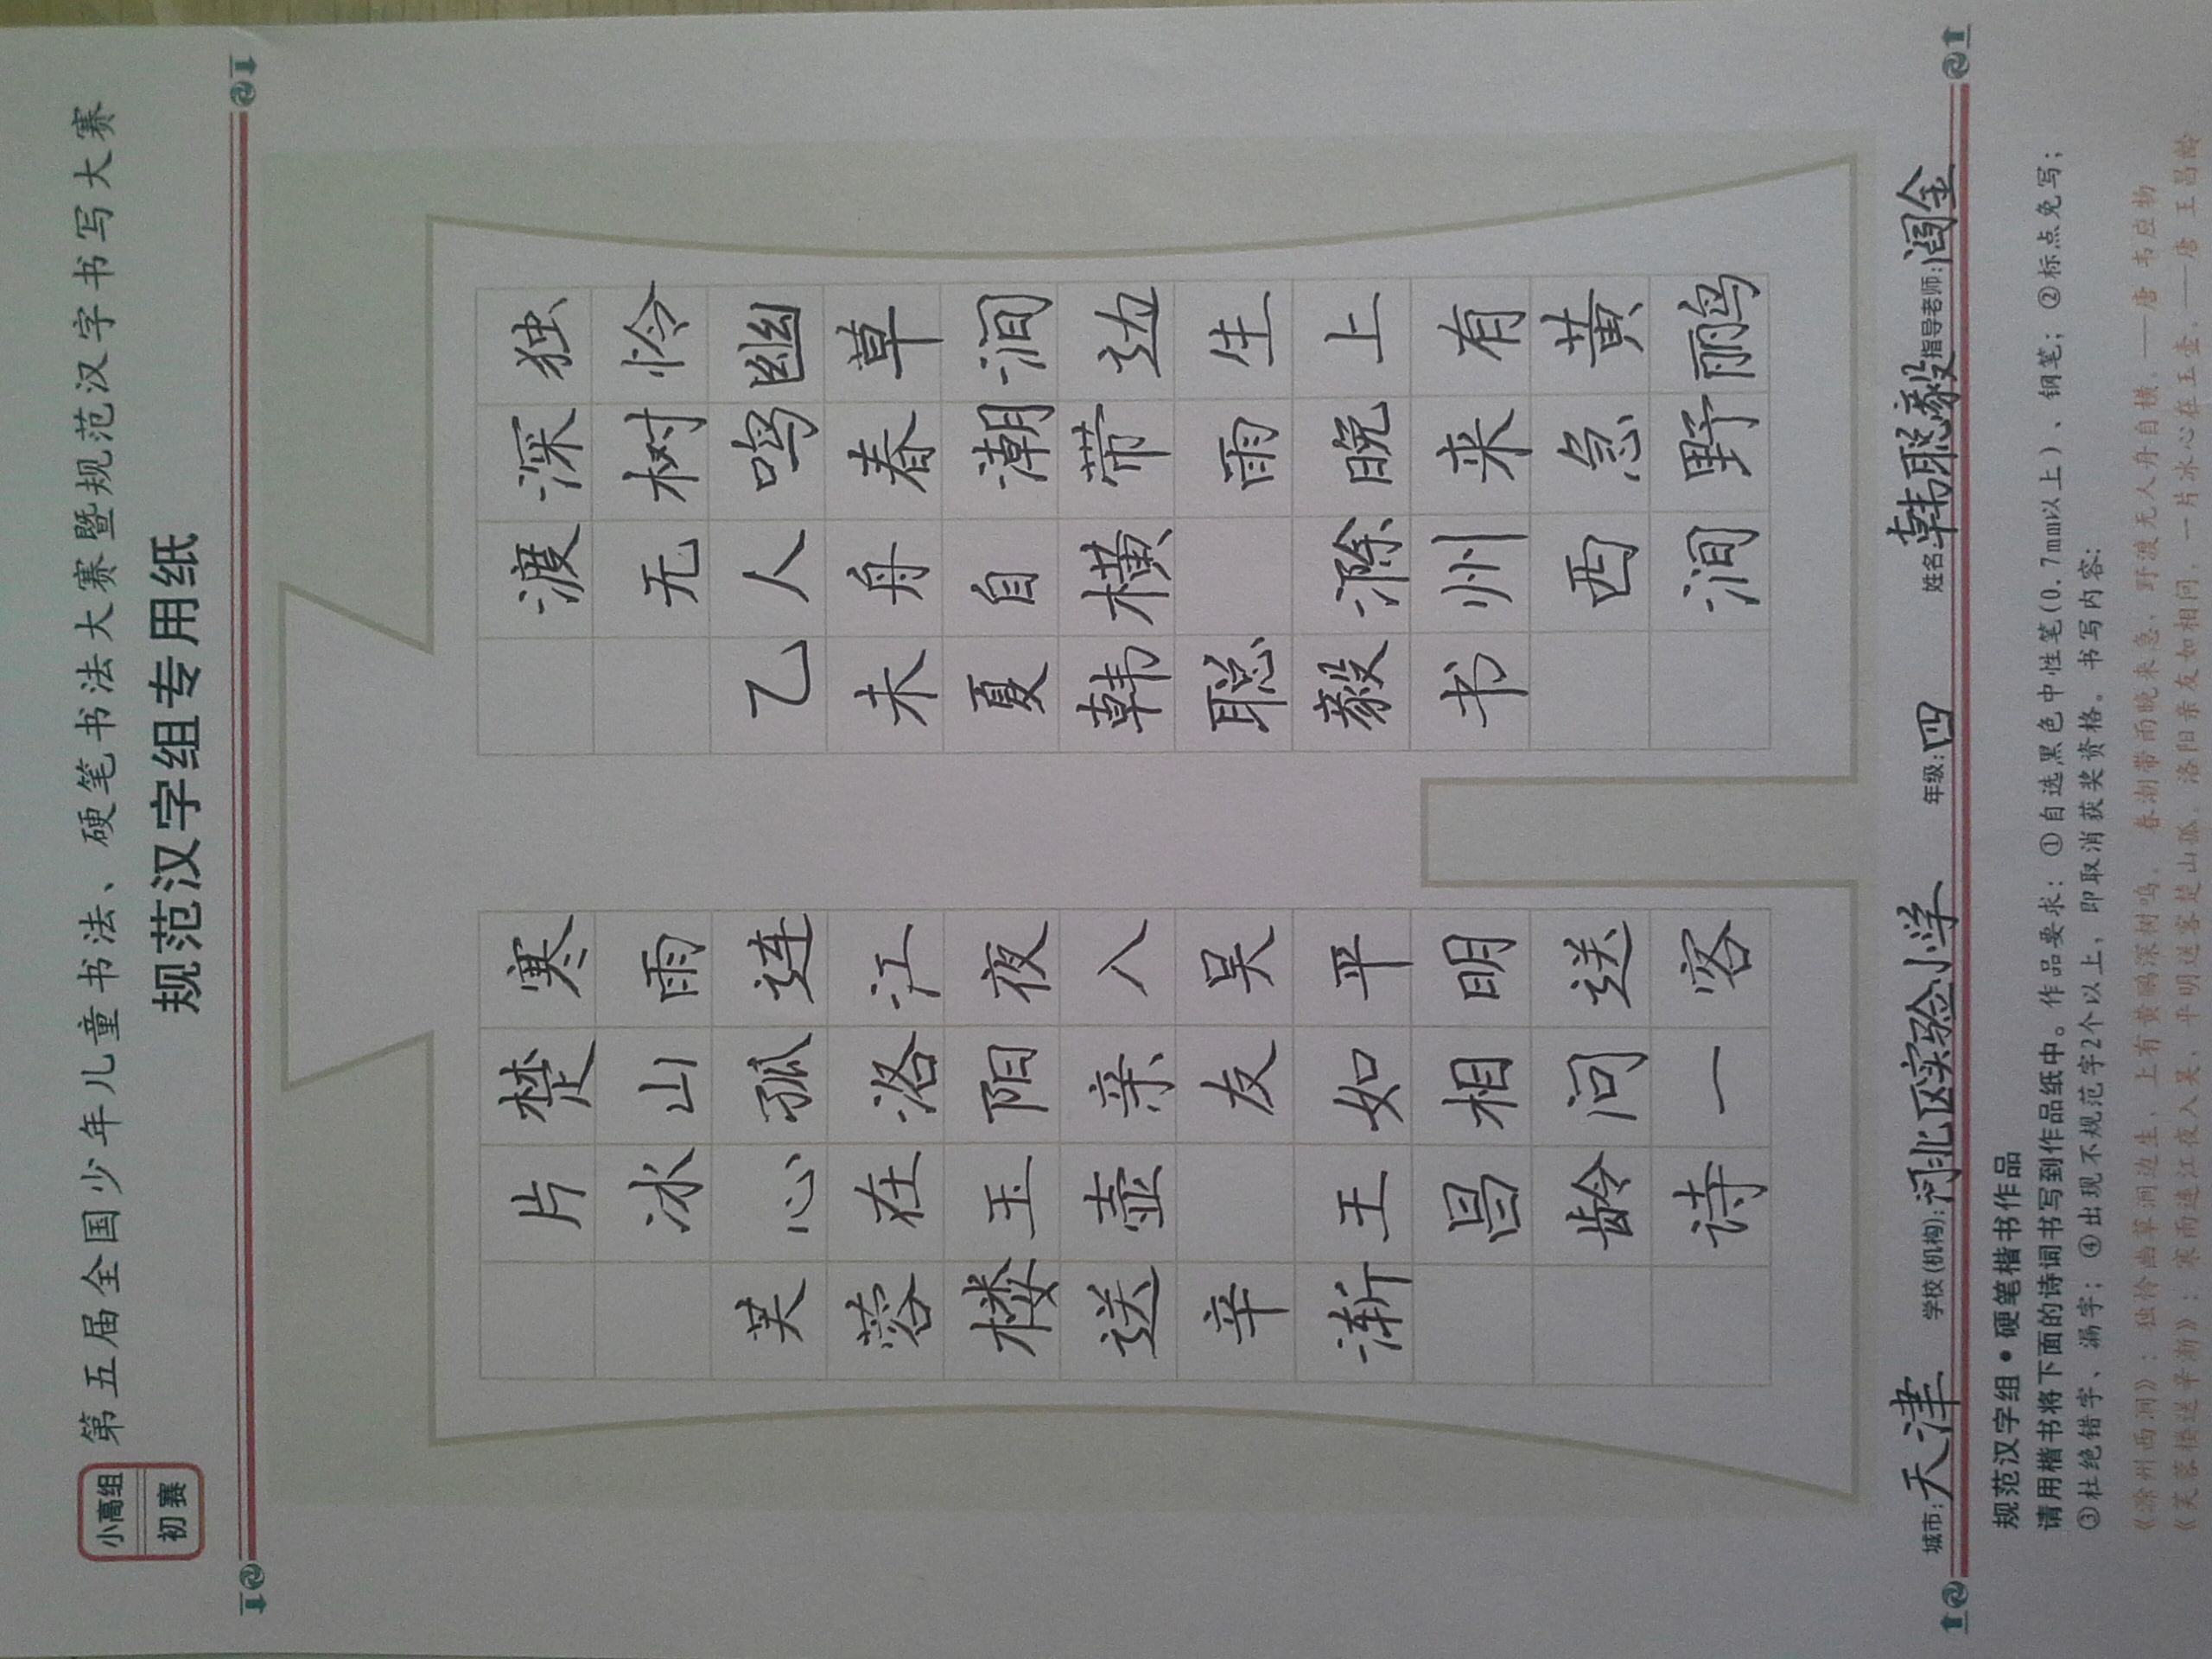 小高组
初赛
第五届全国少年儿童书法、硬笔书法大赛暨规范汉字书写大赛
规范汉字组专用纸
独怜幽草涧边生上有黄鹂
深树鸣春潮带雨晚来急野
渡无人舟自横 滁州西涧
乙未夏韩聪毅书
寒雨连江夜入吴平明送客
楚山孤洛阳亲友如相问一
片冰心在玉壶 王昌龄诗
芙蓉楼送辛渐
城市:天津 学校(机构):河北区实验小学 年级:四 姓名:韩聪毅 指导老师:阎金
规范汉字组•硬笔楷书作品
请用楷书将下面的诗词书写到作品纸中。作品要求:①自选黑色中性笔(0.7mm以上)、钢笔;②标点免写;
③杜绝错字、漏字;④出现不规范字2个以上,即取消获奖资格。书写内容:
《滁州西涧》:独怜幽草涧边生,上有黄鹂深树鸣。春潮带雨晚来急,野渡无人舟自横。——唐 韦应物
《芙蓉楼送辛渐》:寒雨连江夜入吴,平明送客楚山孤。洛阳亲友如相问,一片冰心在玉壶。——唐 王昌龄